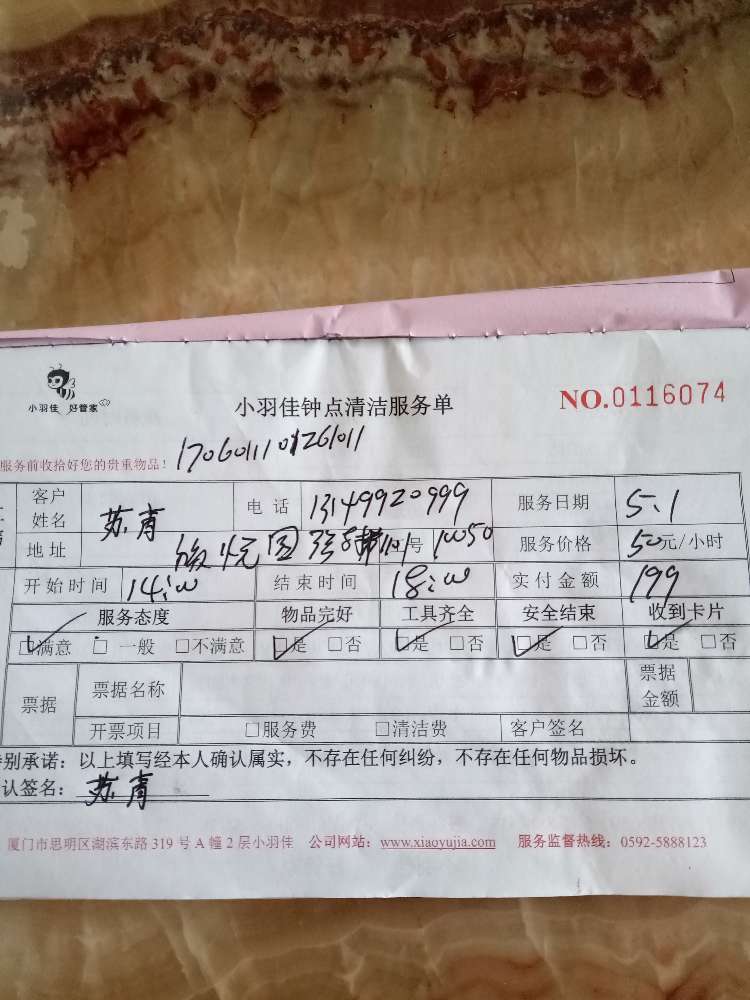 小羽佳 好管家
小羽佳钟点清洁服务单
NO.0116074
服务前收拾好您的贵重物品!
客户姓名 苏青 电话 13149920999 服务日期 5.1
地址 悦园 号 服务价格 50元/小时
开始时间 14:00 结束时间 18:00 实付金额 199
服务态度 物品完好 工具齐全 安全结束 收到卡片
☑满意 □一般 □不满意 ☑是 □否 ☑是 □否 ☑是 □否 ☑是 □否
票据 票据名称 票据金额
开票项目 □服务费 □清洁费 客户签名
别承诺：以上填写经本人确认属实，不存在任何纠纷，不存在任何物品损坏。
认签名：苏青
厦门市思明区湖滨东路 319 号 A 幢 2 层小羽佳 公司网站：www.xiaoyujia.com 服务监督热线：0592-5888123